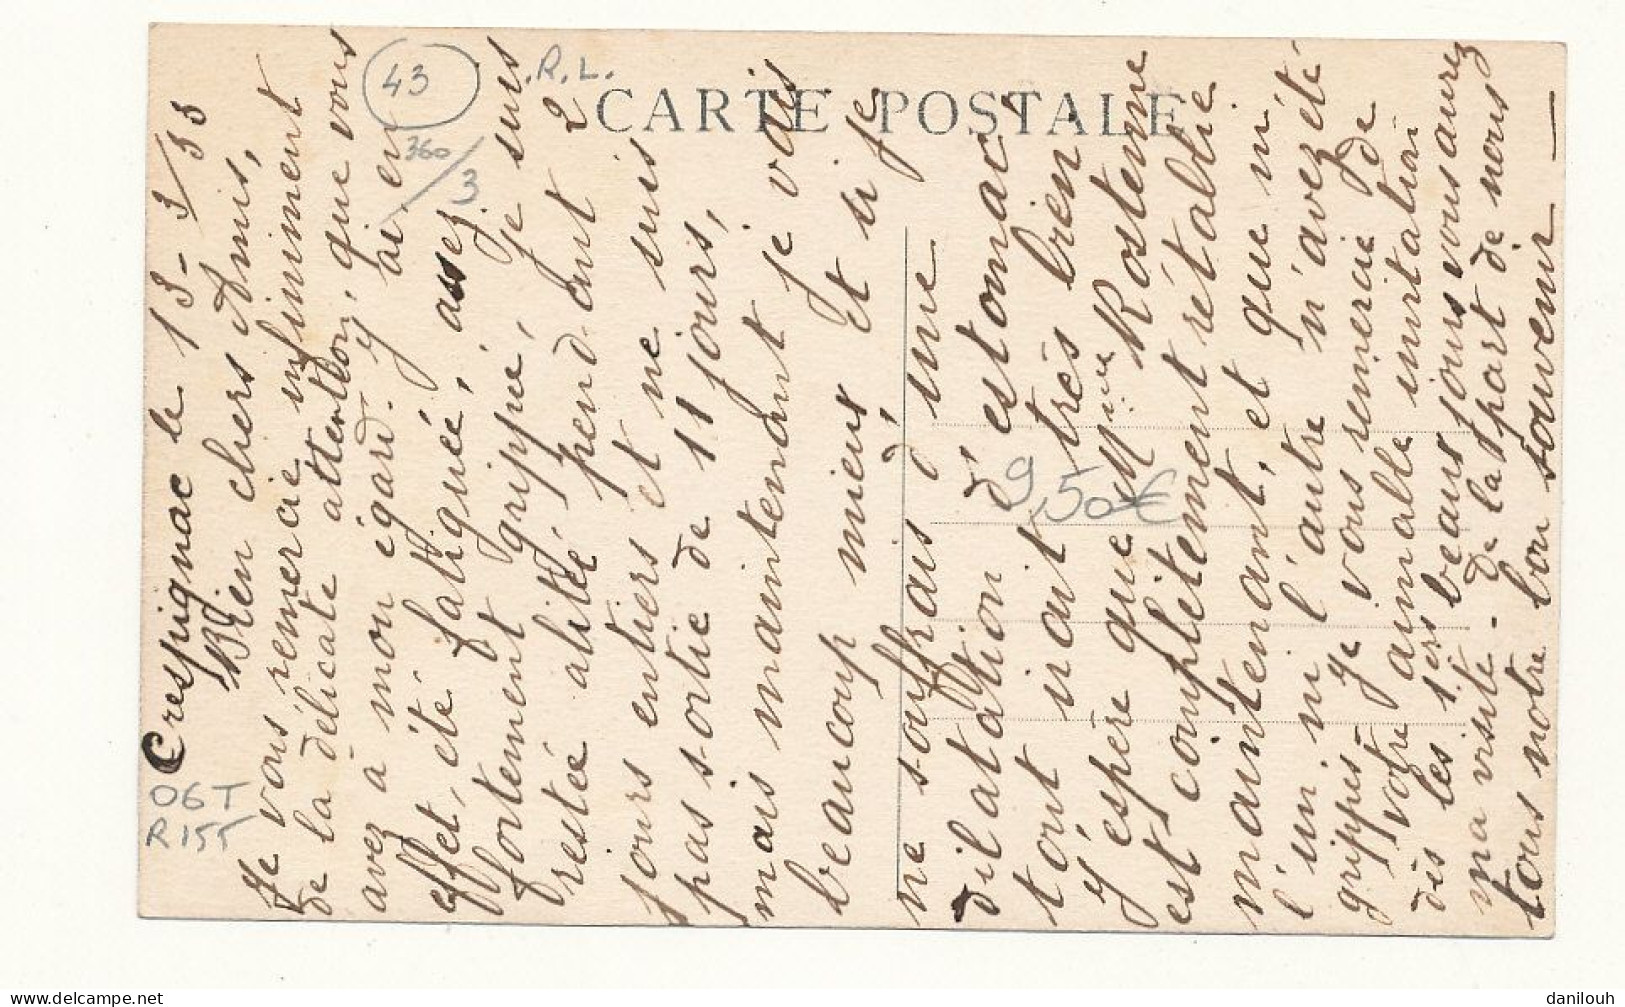 CARTE POSTALE
43
R.L.
360/3
06T
R155
9,50€
Crespignac le 13-3/33
Bien chers Amis,
Je vous remercie infiniment
de la délicate attention, que vous
avez à mon égard. J'ai, en
effet, été fatiguée, assez
fortement grippée, je suis
restée alitée pendant 2
jours entiers et ne suis
pas sortie de 11 jours,
mais maintenant je vais
beaucoup mieux et si je
ne souffrais d'une
dilatation d'estomac
tout irait très bien.
J'espère que Mme Rostenne
est complètement rétablie
maintenant, et que ni
l'un ni l'autre n'avez été
grippés - Je vous remercie de
votre aimable invitation
dès les 1ers beaux jours vous aurez
ma visite - De la part de nous
tous notre bon souvenir —
danilouh